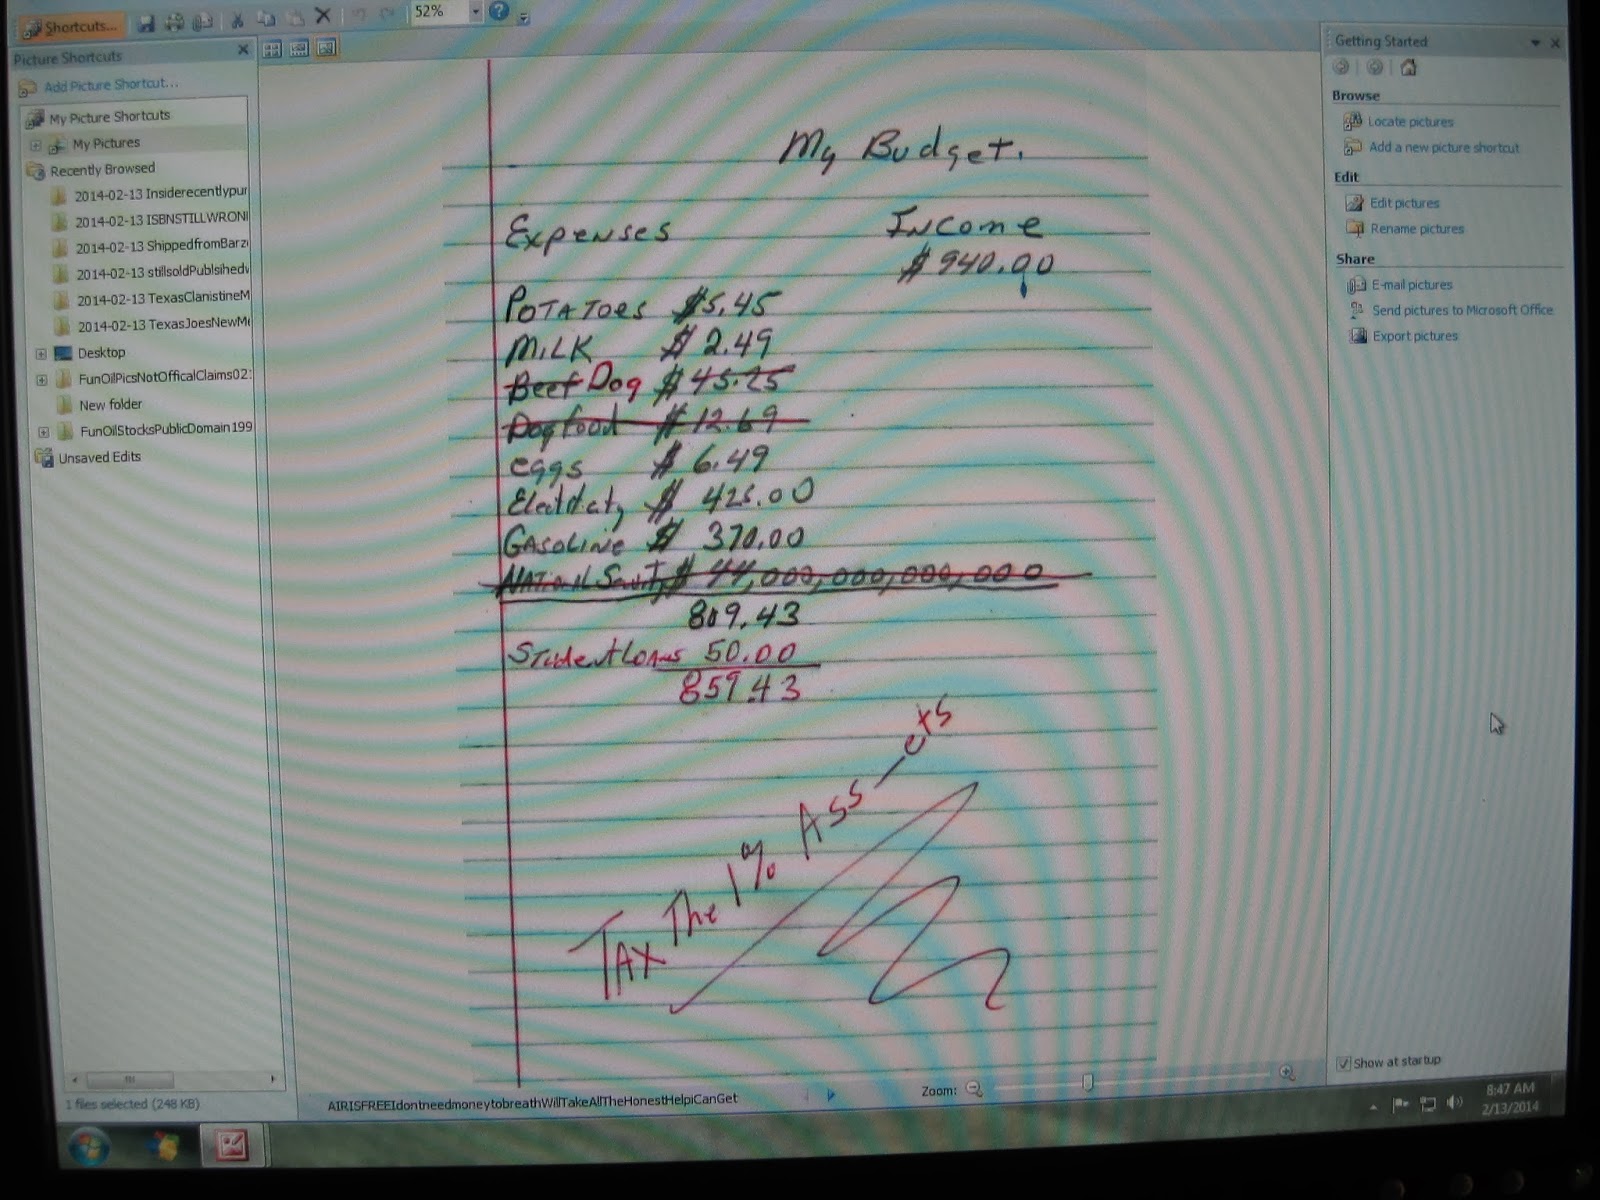 Shortcuts...
52%
Picture Shortcuts
Add Picture Shortcut...
My Picture Shortcuts
My Pictures
Recently Browsed
2014-02-13 Insiderecentlypur
2014-02-13 ISBNSTILLWRONI
2014-02-13 ShippedfromBarz
2014-02-13 stillsoldPublsihedv
2014-02-13 TexasClanistineM
2014-02-13 TexasJoesNewMe
Desktop
FunOilPicsNotOfficalClaims02:
New folder
FunOilStocksPublicDomain199
Unsaved Edits
1 files selected (248 KB)
My Budget.
Expenses Income
$940.00
POTATOES $5.45
MiLK $ 2.49
Beef Dog $ 45.25
Dog food $ 12.69
eggs $ 6.49
$ 425.00
GASOLINE $ 370.00
$ 44,000,000,000,000
809.43
Student Loans 50.00
859.43
TAX The 1% ASS-ets
AIRISFREEIdontneedmoneytobreathWillTakeAllTheHonestHelpiCanGet
Zoom:
Getting Started
Browse
Locate pictures
Add a new picture shortcut
Edit
Edit pictures
Rename pictures
Share
E-mail pictures
Send pictures to Microsoft Office
Export pictures
Show at startup
8:47 AM
2/13/2014